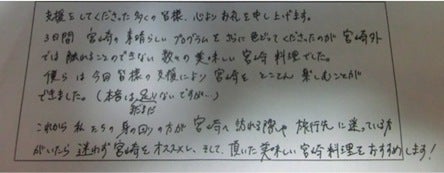 支援をしてくださった多くの皆様、心よりお礼を申し上げます。
3日間 宮崎の素晴らしいプログラムをさらに色どってくださったのが宮崎外
では触れることのできない数々の美味しい宮崎料理でした。
僕らは今回皆様の支援により宮崎をとことん楽しむことが
できました。(本音は足りないですが…)
まだまだ
これから私たちの身の回りの方が宮崎へ訪れる際や旅行先に迷っている方
がいたら迷わず宮崎をオススメし、そして、頂いた美味しい宮崎料理をおすすめします!